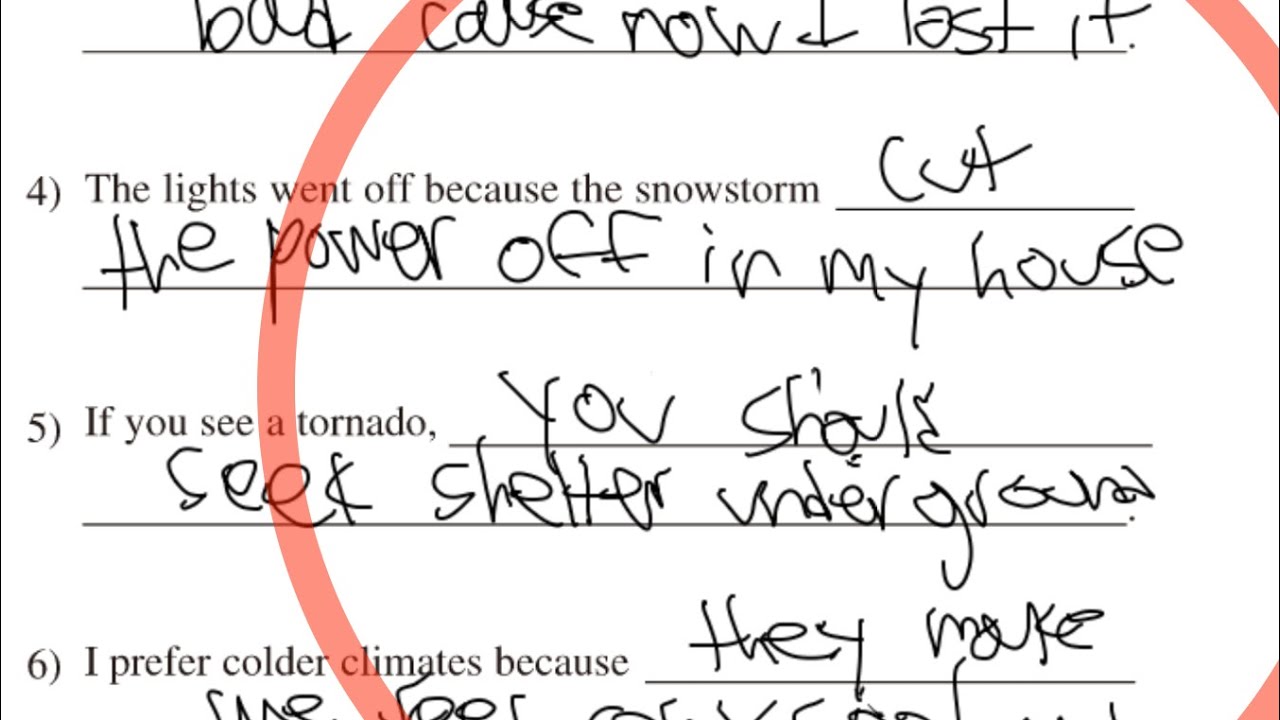 bad cause now I lost it.
4) The lights went off because the snowstorm cut
the power off in my house
5) If you see a tornado, you should
seek shelter underground.
6) I prefer colder climates because they make
me feel